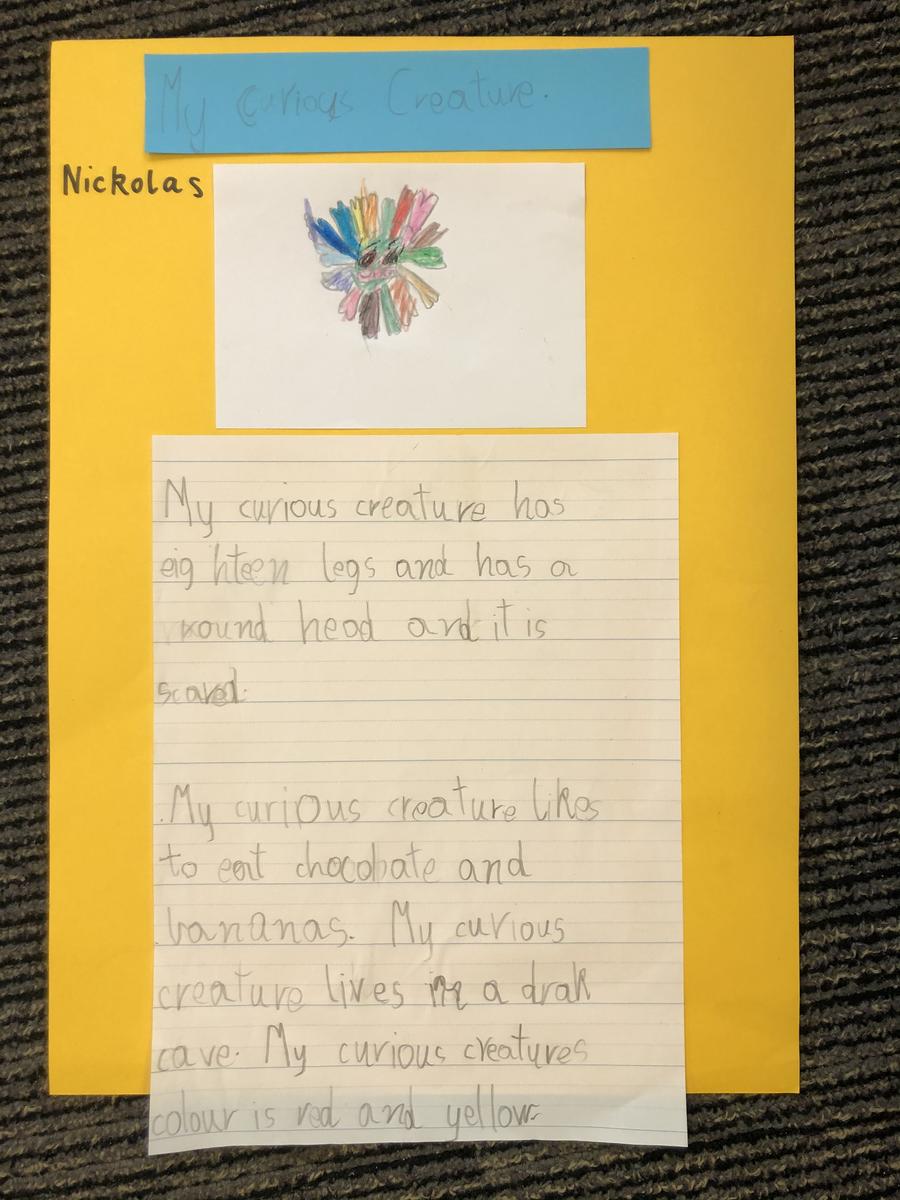 My Curious Creature.
Nickolas
My curious creature has
eighteen legs and has a
round head and it is
scared.
My curious creature likes
to eat chocobate and
bananas. My curious
creature lives in a drak
cave. My curious creatures
colour is red and yellow.